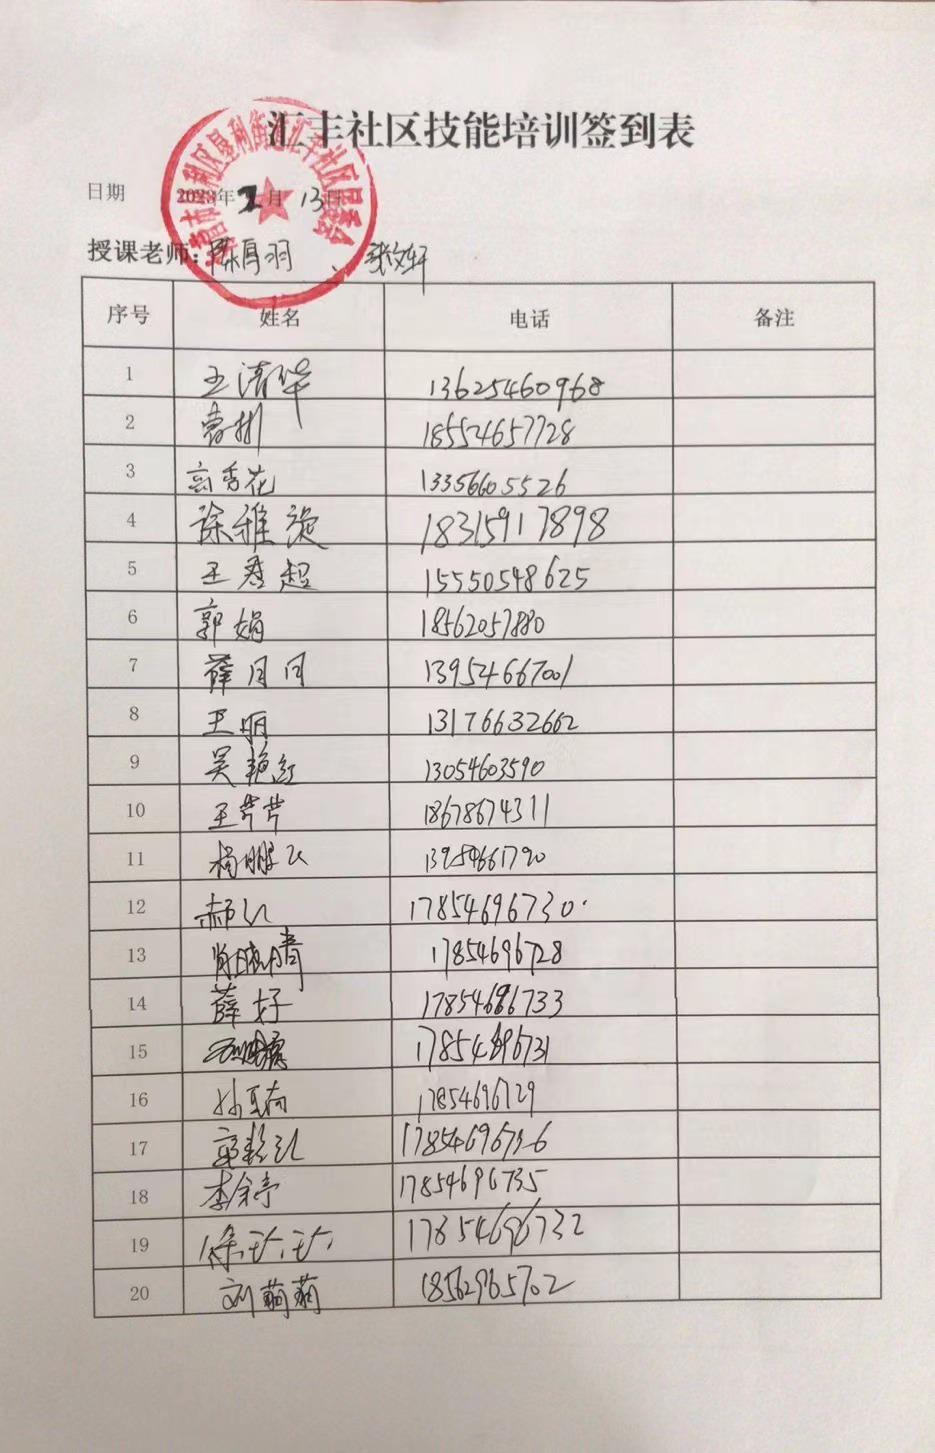 汇丰社区技能培训签到表
日期 2023年2月13日
授课老师: 张文轩
序号 姓名 电话 备注
1 王清华 13625460968
2 曹彬 18554657728
3 高秀花 13356605526
4 徐雅漩 18315917898
5 王春超 15550548625
6 郭娟 18562057880
7 薛月月 13954667001
8 王明 13176632662
9 吴艳红 13054603590
10 王芹芹 18678674311
11 杨鹏飞 13954661790
12 郝红 17854696730
13 肖晓青 17854696728
14 薛好 17854696733
15 17854696731
16 孙 17854696729
17 17854696736
18 李余亭 17854696735
19 徐 17854696732
20 刘萌萌 18562965702